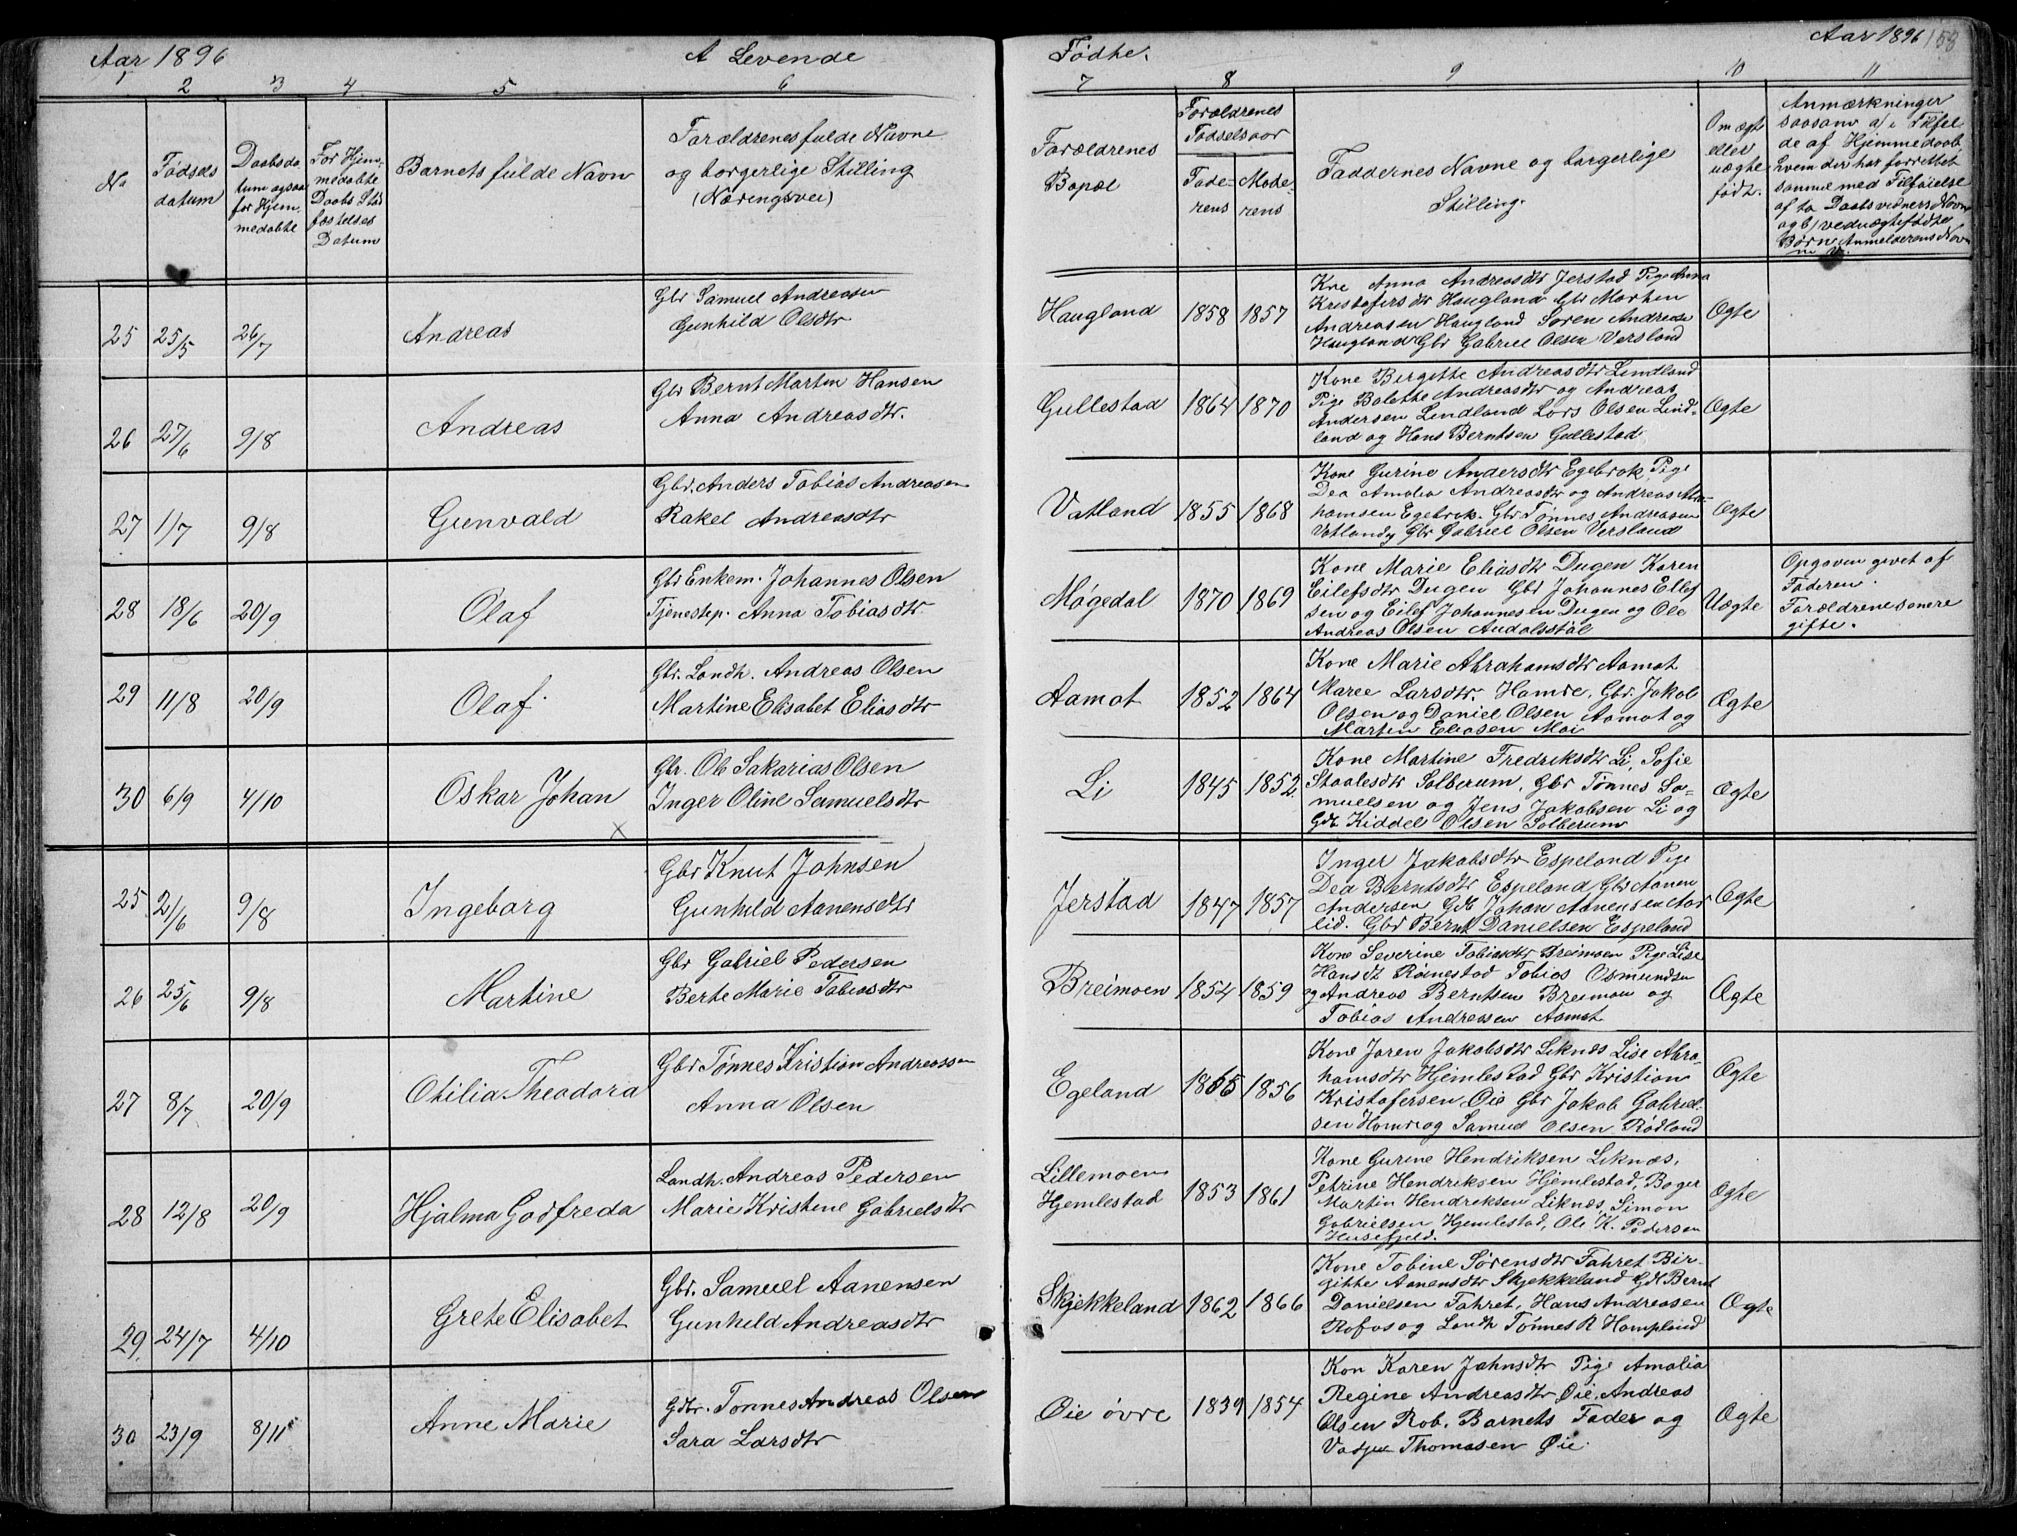 Aar 1896
A Levende
Fødte.
Aar 1896
158
1 2 3 4 5 6 7 8 9 10 11
No
Fødsels
datum
Daabsda
tum ogsaa
for Hjem
medøbte
For Hjem
medøbte
Daabs Stad
fæstelses
Datum
Barnets fulde Navn
Forældrenes fulde Navne
og borgerlige Stilling
(Næringsvei)
Forældrenes
Bopæl
Forældrenes
Fødselsaar
Fade-
rens
Mode-
rens
Faddernes Navne og borgerlige
Stilling.
Om ægte
eller
uægte
født.
Anmærkninger
saasom a) i Tilfæl
de af Hjemmedaab,
hvem der har forrettet
samme med Tilføielse
af to Daabsvidners Navne
og b) ved uægtefødte
Børn Anmelderens Nav
25 25/5 26/7 Andreas
Gbr Samuel Andreasen
Gunhild Olsdtr
Haugland 1858 1857
Kne Anna Andreasdtr Jerstad Pige Anna
Kristofersdtr Haugland Gbr Morten
Andreasen Haugland Søren Andreas
Haugland Gbr Gabriel Olsen Versland
Ægte
26 27/6 9/8 Andreas
Gbr Bernt Martin Hansen
Anna Andreasdtr.
Gullestad 1864 1870
Kone Birgitte Andreasdtr Lindland
Pige Bolette Andreasdtr og Andreas
Andersen Lindland Lars Olsen Lind-
land og Hans Berntsen Gullestad
Ægte
27 1/7 9/8 Gunvald
Gbr. Anders Tobias Andreasen
Rakel Andreasdtr
Vatland 1855 1868
Kone Gurine Andersdtr Egebrok Pige
Dea Amalia Andreasdtr og Andreas Abra-
hamsen Egebrok. Gbr Tønnes Andreasen
Vatland Gbr Gabriel Olsen Versland
Ægte
28 18/6 20/9 Olaf
Gbr Enkem. Johannes Olsen
Tjenestep. Anna Tobiasdtr
Møgedal 1870 1869
Kone Marie Eliasdtr Dugen Karen
Eilefsdtr Dugen Gbr Johannes Ellef
sen og Eilef Johannesen Dugen og Ole
Andreas Olsen Audalsstøl
Uægte
Opgaven givet af
Faderen.
Forældrene senere
gifte.
29 11/8 20/9 Olaf.
Gbr. Landh. Andreas Olsen
Martine Elisabet Eliasdtr
Aamot 1852 1864
Kone Marie Abrahamsdtr Aamot
Maree Larsdtr. Hamre, Gbr. Jakob
Olsen og Daniel Olsen Aamot og
Martin Eliasen Moi
Ægte
30 6/9 4/10 Oskar Johan
Gbr. Ole Sakarias Olsen
Inger Oline Samuelsdtr
Li 1845 1852
Kone Martine Fredriksdtr Li, Sofie
Staalesdtr Solberum, Gbr Tønnes Sa-
muelsen og Jens Jakobsen Li og
Gdt Kiddel Olsen Solberum
Ægte
25 2/6 9/8 Ingeborg
Gbr Knut Johnsen
Gunhild Aanensdtr
Jerstad 1847 1857
Inger Jakobsdtr Espeland Pige
Dea Berntsdtr Espeland Gbr Aanen
Andersen Gdt Johan Aanensen Aar
lid. Gbr Bernt Danielsen Espeland
Ægte
26 25/6 9/8 Martine
Gbr Gabriel Pedersen
Berte Marie Tobiasdtr
Breimoen 1854 1859
Kone Severine Tobiasdtr Breimoen Pige Lise
Hansdt Røinestad Tobias Osmundsn
og Andreas Berntsen Breimoen og
Tobias Andreasen Aamot
Ægte
27 8/7 20/9 Otilia Theodora
Gbr Tønnes Kristian Andreassen
Anna Olsen
Egeland 1865 1856
Kone Joren Jakobsdtr Liknes Lise Abra-
hamsdtr Hjemlestad Gbr Kristian
Kristofersen Øie Gbr Jakob Gabriel-
sen Hamre og Samuel Olsen Rødland
Ægte
28 12/8 20/9 Hjalma Godfreda
Landh. Andreas Pedersen
Marie Kristine Gabrielsdtr
Lillemoen
Hjemlestad 1853 1861
Kone Gurine Hendriksen Liknes,
Petrine Hendriksen Hjemlestad, Bager
Martin Hendriksen Liknes, Simon
Gabrielsen Hjemlestad, Ole K. Pedersen
Husefjeld.
Ægte
29. 24/7 4/10 Grete Elisabet
Gbr. Samuel Aanensen
Gunhild Andreasdtr
Skjekkeland 1862 1866
Kone Tobine Sørensdtr Fahret Bir-
gitte Aanensdtr Skjekkeland Gdt Bernt
Danielsen Fahret, Hans Andreasen
Rofos og Landh Tønnes R Hompland
Ægte
30 23/9 8/11 Anne Marie
Gdbr. Tønnes Andreas Olsen
Sara Larsdtr
Øie øvre 1839 1854
Kon Karen Jahnsdtr Pige Amalia
Regine Andreasdtr Øie, Andreas
Olsen Rob. Barnets Fader og
Thomasen Øie.
Ægte